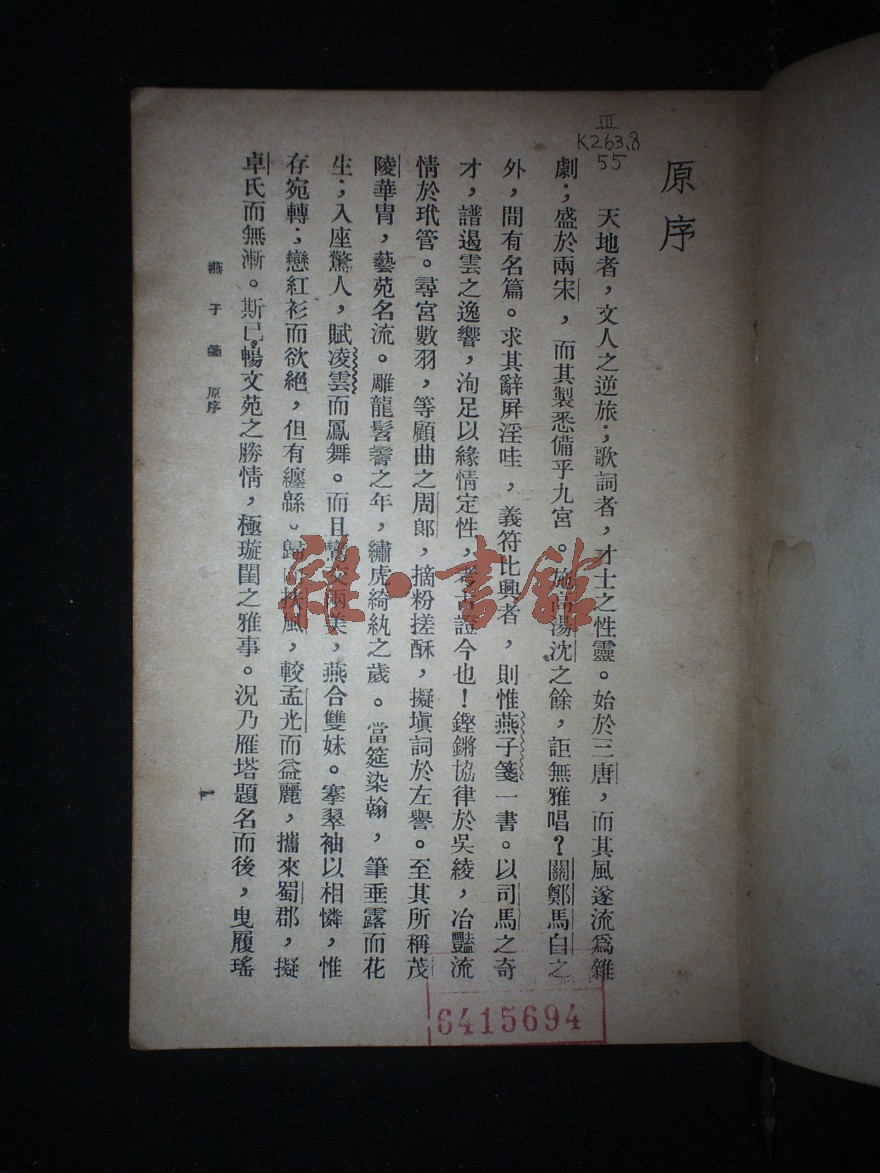 III
K263.8
55
原序
天地者，文人之逆旅；歌詞者，才士之性靈。始於三唐，而其風遂流爲雜
劇；盛於兩宋，而其製悉備乎九宮。施高湯沈之餘，詎無雅唱？關鄭馬白之
外，間有名篇。求其辭屏淫哇，義符比興者，則惟燕子箋一書。以司馬之奇
才，譜遏雲之逸響，洵足以緣情定性，考古證今也！鏗鏘協律於吳綾，冶豔流
情於玳管。尋宮數羽，等顧曲之周郎，摘粉搓酥，擬塡詞於左譽。至其所稱茂
陵華胄，藝苑名流。雕龍髫齡之年，繡虎綺紈之歲。當筵染翰，筆垂露而花
生；入座驚人，賦凌雲而鳳舞。而且鸞交兩美，燕合雙妹。搴翠袖以相憐，惟
存宛轉；戀紅衫而欲絕，但有纏緜。歸扶風，較孟光而益麗，攜來蜀郡，擬
卓氏而無漸。斯已暢文苑之勝情，極璇閨之雅事。況乃雁塔題名而後，曳履瑤
燕子箋 原序
一
雜·書館
6415694